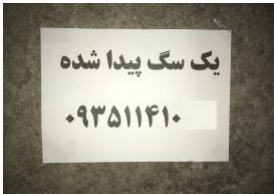 یک سگ پیدا شده
۰۹۳۵۱۱۴۱۰